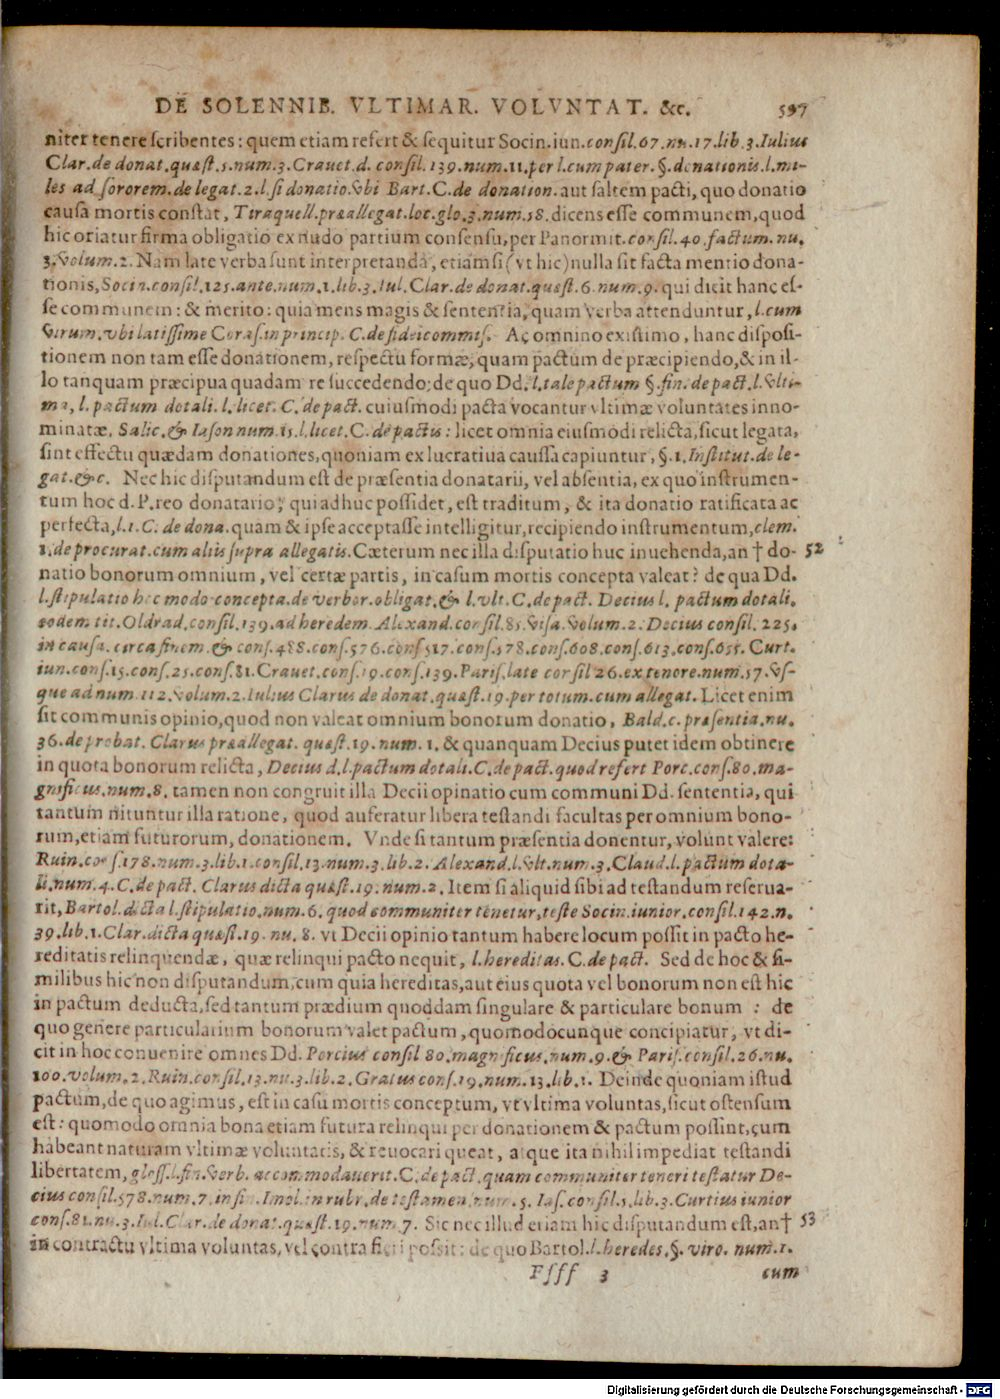 DE SOLENNIB. VLTIMAR. VOLVNTAT. &c. 597
niter tenere scribentes: quem etiam refert & sequitur Socin. iun. consil. 67. nu. 17. lib. 3. Iulius
Clar. de donat. quæst. 5. num. 3. Crauet. d. consil. 139. num. 11. per l. cum pater. §. donationis. l. mi-
les ad sororem. de legat. 2. l. si donatio. vbi Bart. C. de donation. aut saltem pacti, quo donatio
causa mortis constat, Tiraquell. præallegat. loc. glo. 3. num. 18. dicens esse communem, quod
hic oriatur firma obligatio ex nudo partium consensu, per Panormit. consil. 40. factum. nu.
3. volum. 2. Nam late verba sunt interpretanda, etiamsi (vt hic) nulla sit facta mentio dona-
tionis, Socin. consil. 125. ante. num. 1. lib. 3. Iul. Clar. de donat. quæst. 6. num. 9. qui dicit hanc es-
se communem: & merito: quia mens magis & sententia, quam verba attenduntur, l. cum
virum. vbi latissime Coras. in princip. C. de fideicommiss. Ac omnino existimo, hanc disposi-
tionem non tam esse donationem, respectu formæ, quam pactum de præcipiendo, & in il-
lo tanquam præcipua quadam re succedendo: de quo Dd. l. tale pactum §. fin. de pact. l. vlti-
ma, l. pactum dotali. l. licet. C. de pact. cuiusmodi pacta vocantur vltimæ voluntates inno-
minatæ, Salic. & Iason num. 15. l. licet. C. de pactis: licet omnia eiusmodi relicta, sicut legata,
sint effectu quædam donationes, quoniam ex lucratiua caussa capiuntur, §. 1. Institut. de le-
gat. &c. Nec hic disputandum est de præsentia donatarii, vel absentia, ex quo instrumen-
tum hoc d. P. reo donatario, qui adhuc possidet, est traditum, & ita donatio ratificata ac
perfecta, l. 1. C. de dona. quam & ipse acceptasse intelligitur, recipiendo instrumentum, clem.
1. de procurat. cum aliis supra allegatis. Cæterum nec illa disputatio huc inuehenda, an † do- 52
natio bonorum omnium, vel certæ partis, in casum mortis concepta valeat? de qua Dd.
l. stipulatio hoc modo concepta. de verbor. obligat. & l. vlt. C. de pact. Decius l. pactum dotali.
eodem tit. Oldrad. consil. 139. ad heredem. Alexand. consil. 85. visa. volum. 2. Decius consil. 225.
in causa. circa finem. & cons. 488. cons. 576. cons 517. cons. 578. cons. 608. cons. 613. cons. 655. Curt.
iun. cons. 15. cons. 25. cons. 81. Crauet. cons. 19. cons. 139. Paris. late consil 26. ex tenore. num. 57. vs-
que ad num. 112. volum. 2. Iulius Clarus de donat. quæst. 19. per totum. cum allegat. Licet enim
sit communis opinio, quod non valeat omnium bonorum donatio, Bald. c. præsentia. nu.
36. de probat. Clarus præallegat. quæst. 19. num. 1. & quanquam Decius putet idem obtinere
in quota bonorum relicta, Decius d. l. pactum dotali. C. de pact. quod refert Porc. cons. 80. ma-
gnificus. num. 8. tamen non congruit illa Decii opinatio cum communi Dd. sententia, qui
tantum nituntur illa ratione, quod auferatur libera testandi facultas per omnium bono-
rum, etiam futurorum, donationem. Vnde si tantum præsentia donentur, volunt valere:
Ruin. cons. 178. num. 3. lib. 1. consil. 13. num. 3. lib. 2. Alexand. l. vlt. num. 3. Claud. l. pactum dota-
li. num. 4. C. de pact. Clarus dicta quæst. 19. num. 2. Item si aliquid sibi ad testandum reserua-
rit, Bartol. dicta l. stipulatio. num. 6. quod communiter tenetur, teste Socin. iunior. consil. 142. n.
39. lib. 1. Clar. dicta quæst. 19. nu. 8. vt Decii opinio tantum habere locum possit in pacto he-
reditatis relinquendæ, quæ relinqui pacto nequit, l. hereditas. C. de pact. Sed de hoc & si-
milibus hic non disputandum, cum quia hereditas, aut eius quota vel bonorum non est hic
in pactum deducta, sed tantum prædium quoddam singulare & particulare bonum : de
quo genere particularium bonorum valet pactum, quomodocunque concipiatur, vt di-
cit in hoc conuenire omnes Dd. Porcius consil 80. magnificus. num. 9. & Paris. consil. 26. nu.
100. volum. 2. Ruin. consil. 13. nu. 3. lib. 2. Gratus cons. 19. num. 13. lib. 1. Deinde quoniam istud
pactum, de quo agimus, est in casu mortis conceptum, vt vltima voluntas, sicut ostensum
est: quomodo omnia bona etiam futura relinqui per donationem & pactum possint, cum
habeant naturam vltimæ voluntatis, & reuocari queat, atque ita nihil impediat testandi
libertatem, gloss. l. fin. verb. accommodauerit. C. de pact. quam communiter teneri testatur De-
cius consil. 578. num. 7. in fin. Imol. in rubr. de testamen. num. 5. Ias. consil. 5. lib. 3. Curtius iunior
cons. 81. nu. 3. Iul. Clar. de donat. quæst. 19. num. 7. Sic nec illud etiam hic disputandum est, an † 53
in contractu vltima voluntas, vel contra fieri possit: de quo Bartol. l. heredes. §. viro. num. 1.
Ffff 3 cum
Digitalisierung gefördert durch die Deutsche Forschungsgemeinschaft - DFG